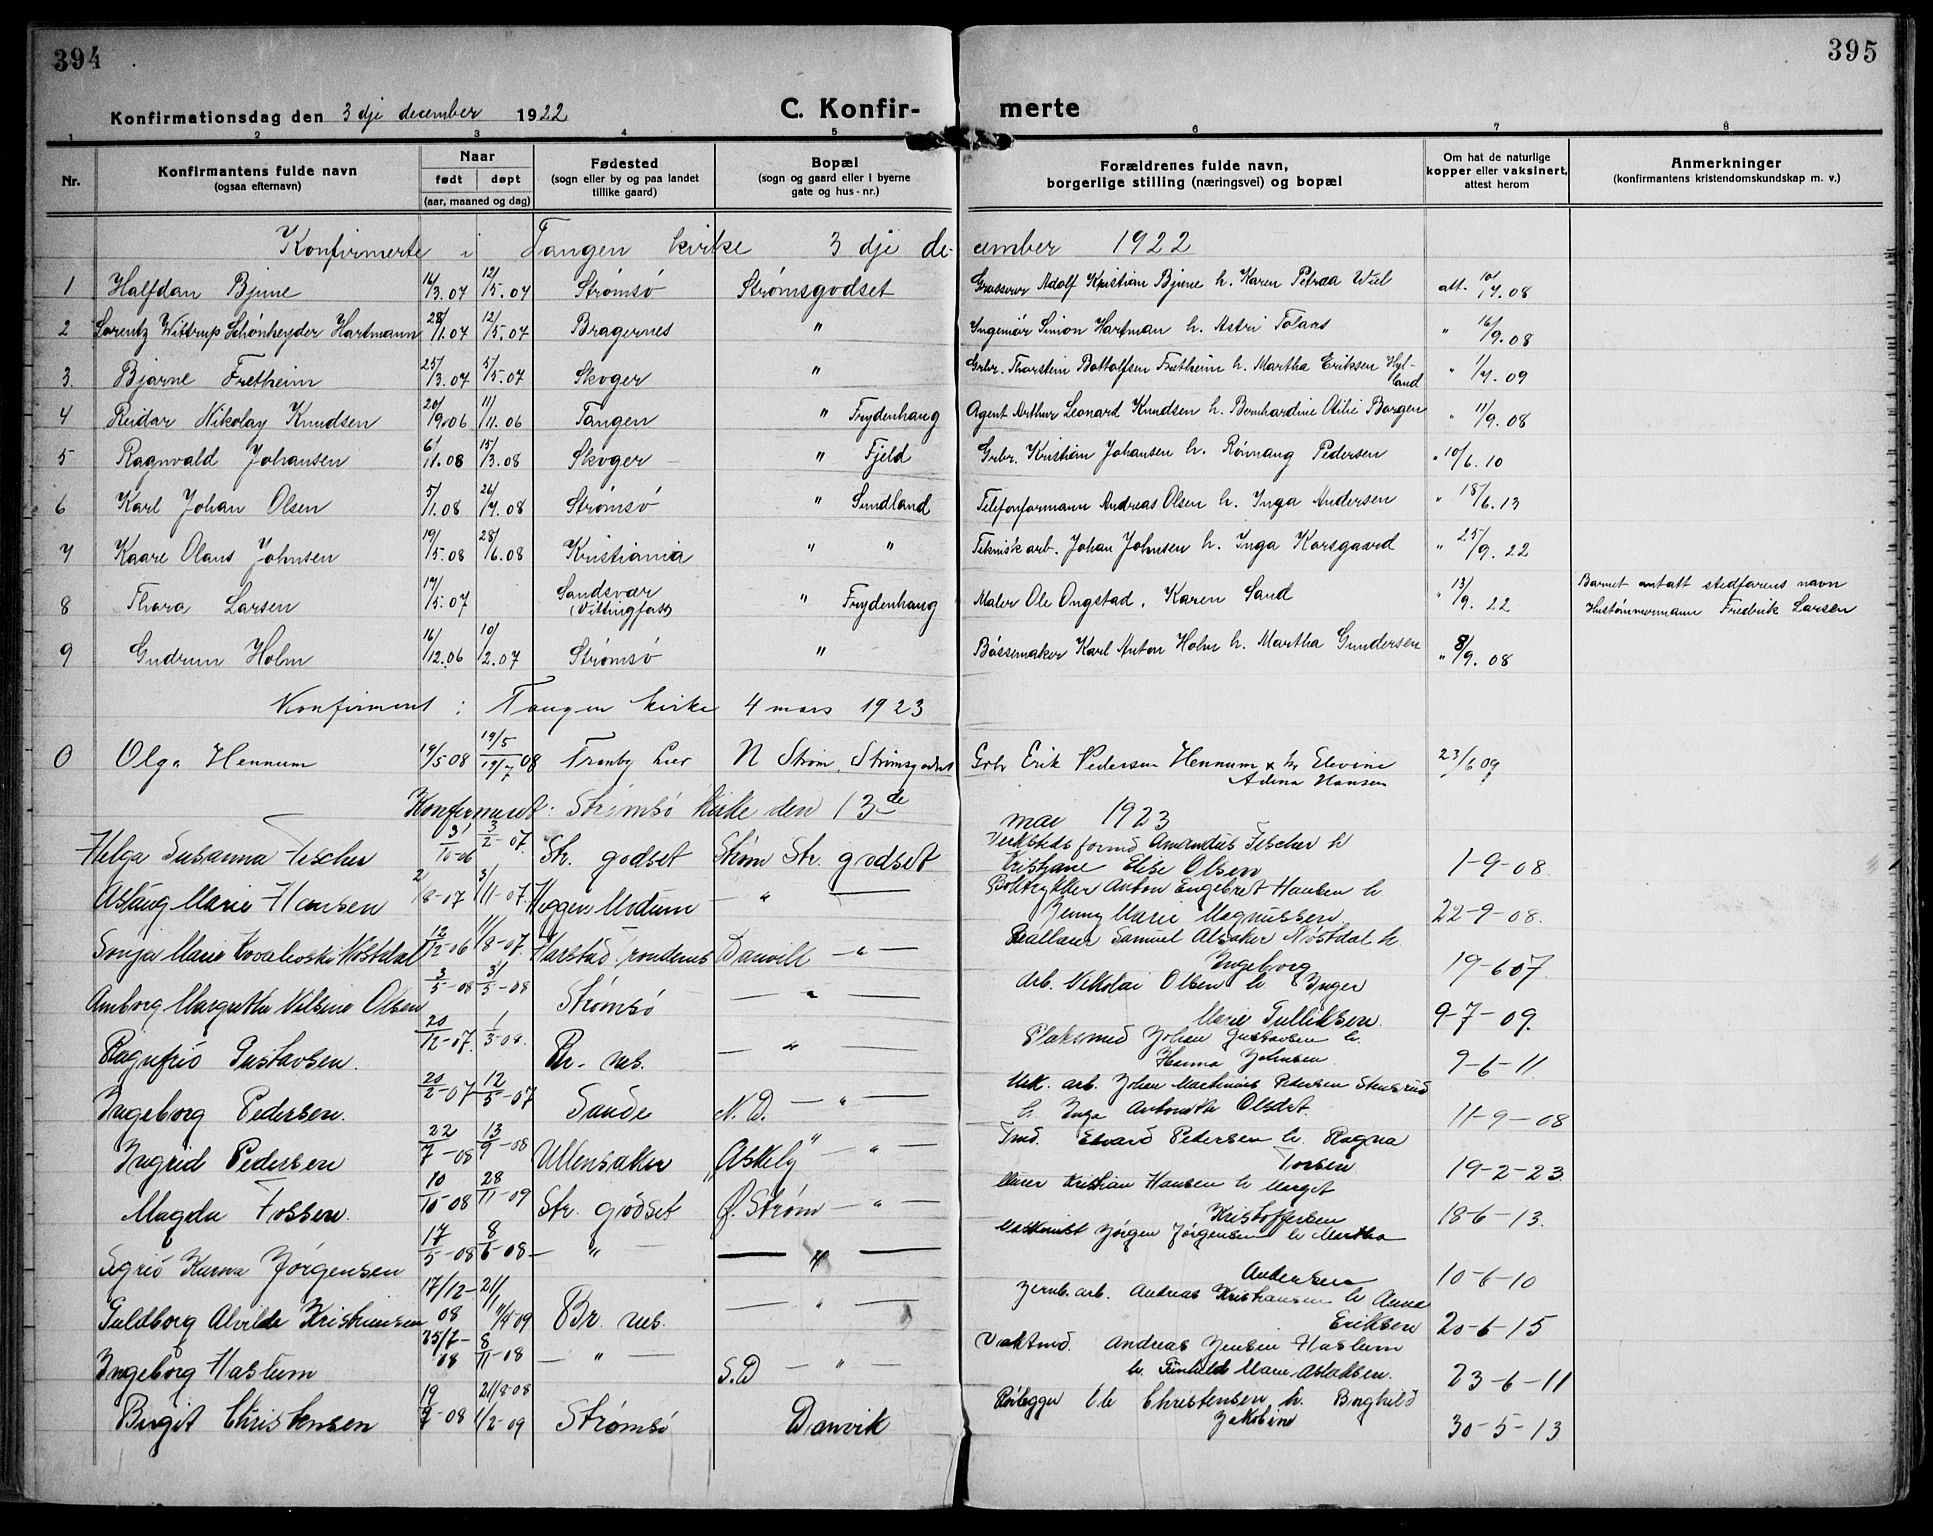 394
395
Konfirmationsdag den 3 dje december 1922
C. Konfir-
merte
1 2 3 4 5 6 7 8
Nr.
Konfirmantens fulde navn
(ogsaa efternavn)
Naar
født døpt
(aar, maaned og dag)
Fødested
(sogn eller by og paa landet
tillike gaard)
Bopæl
(sogn og gaard eller i byerne
gate og hus-nr.)
Forældrenes fulde navn,
borgerlige stilling (næringsvei) og bopæl
Om hat de naturlige
kopper eller vaksinert,
attest herom
Anmerkninger
(konfirmantens kristendomskundskap m. v.)
Konfirmerte i Tangen kirke 3 dje december 1922
1 Halfdan Bjune 16/3.07 12/5.07 Strømsø Strømsgodset Adolf Kristian Bjune h. Karen Petrea Wiel att. 10/7.08
2 Lorentz Wittrup Schønheyder Hartmann 28/1.07 12/5.07 Bragernes " Ingeniør Simon Hartman h. Astri " 16/9.08
3. Bjarne Fretheim 25/3.07 5/5.07 Skoger " Grbr. Thorstein Bottolfsen Fretheim h. Martha Eriksen Hyl-
land " 1/7.09
4 Reidar Nikolay Knudsen 20/9.06 11/11.06 Tangen " Frydenhaug Agent Arthur Leonard Knudsen h. Bernhardine Otilie Borgen " 11/9.08
5 Ragnvald Johansen 6/11.08 15/13.08 Skoger " Fjeld Grbr. Kristian Johansen h. Rønnaug Pedersen " 10/6.10
6 Karl Johan Olsen 5/1.08 26/7.08 Strømsø " Sundland Telefonformann Andreas Olsen h. Inga Andersen " 18/6.13
7 Kaare Olaus Johnsen 19/5.08 28/6.08 Kristiania " " Teknisk arb. Johan Johnsen h. Inga Korsgaard " 25/9.22
8 Thora Larsen 17/5.07 Sandsvær
(Vittingfoss) " Frydenhaug Maler Ole Ongstad, Karen Sand " 13/9.22 Barnet antatt stedfarens navn
Hustømmermann Fredrik Larsen
9 Gudrun Holm 16/12.06 10/2.07 Strømsø " Bøssemaker Karl Anton Holm h. Martha Gundersen " 8/9.08
Konfirmert i Tangen kirke 4 mars 1923
0 Olga Hennum 19/5 08 19/7 08 Tranby Lier N Strøm, Strømsgodset Grbr Erik Pedersen Hennum & h. Elevine
Adina Hansen 23/6 09
Konfirmeret i Strømsø Kirke den 13de mai 1923
Helga Susanna Fischer 31/10-06 3/2-07. Str. godset Strøm Str. godset Verkstedsformd Amandus Fischer h
Kristiane Elise Olsen 1-9-08.
Aslaug Marie Hansen 2/8-07 3/11-07. Heggen Modum — " — Boktrykker Anton Engebret Hansen h.
Jenny Marie Magnussen 22-9-08.
Sonja Marie Nøstdal 12/12-06 11/8-07. Harstad, Trondenes Danvik — " — Samuel Alsaker Nøstdal h.
Ingeborg 19-6 07
Margrethe Nilsine Olsen 3/5-08 31/5-08 Strømsø — " — Arb. Nikolai Olsen h. Inger
Marie Tulliksen. 9-7-09.
Ragnfrid Gustavsen. 20/12-07. 1/3-08. Br. nes. — " — Pladesmed Johan Gustavsen h.
Hanna Johnsen 9-6-11
Ingeborg Pedersen. 20/2-07 12/5-07 Sande N. D. — " — arb. Johan Martinius Pedersen Stensrud
h. Inga Olsdat. 11-9-08
Ingrid Pedersen 22/7-08 13/9-08 Ullensaker Askely — " — Fmd. Edvard Petersen h. Ragna
Torsen 19-2-23
Magda Fossen. 10/10-08 28/11-09 Str. godset Ø. Strøm — " — Murer Kristian Hansen h. Marget
Kristoffersen 18-6-13.
Sigrid Karna Jørgensen 17/5-08 8/6-08 — " — — " — Maskinist Jørgen Jørgensen h Martha
Andersen 10-6-10
Guldborg Alvilde Kristiansen 17/12-08 Br. nes. — " — Jernb. arb. Andreas Kristiansen h Anna
Eriksen 20-6-15
Ingeborg Haslum 25/7-08 8/11-08 — " — S.D — " — Vaktmd. Andreas Jensen Haslum
h. Gunhild Marie Aslaksen. 23-6-11
Birgit Christensen 19/9-08 1/2-09 Strømsø Danvik Rørlegger Ole Christensen h. Borghild
Jakobine 30-5-13